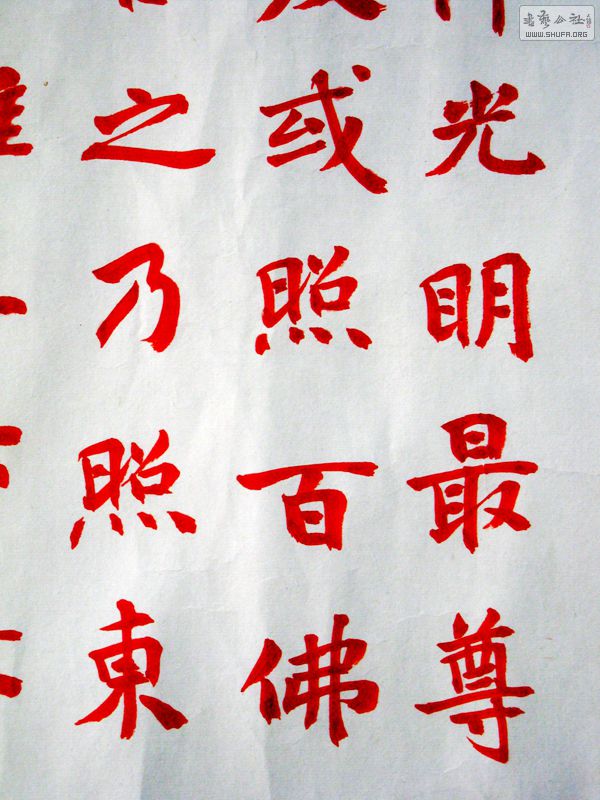 光明最尊
或照百佛
之乃照東
書藝公社
WWW.SHUFA.ORG